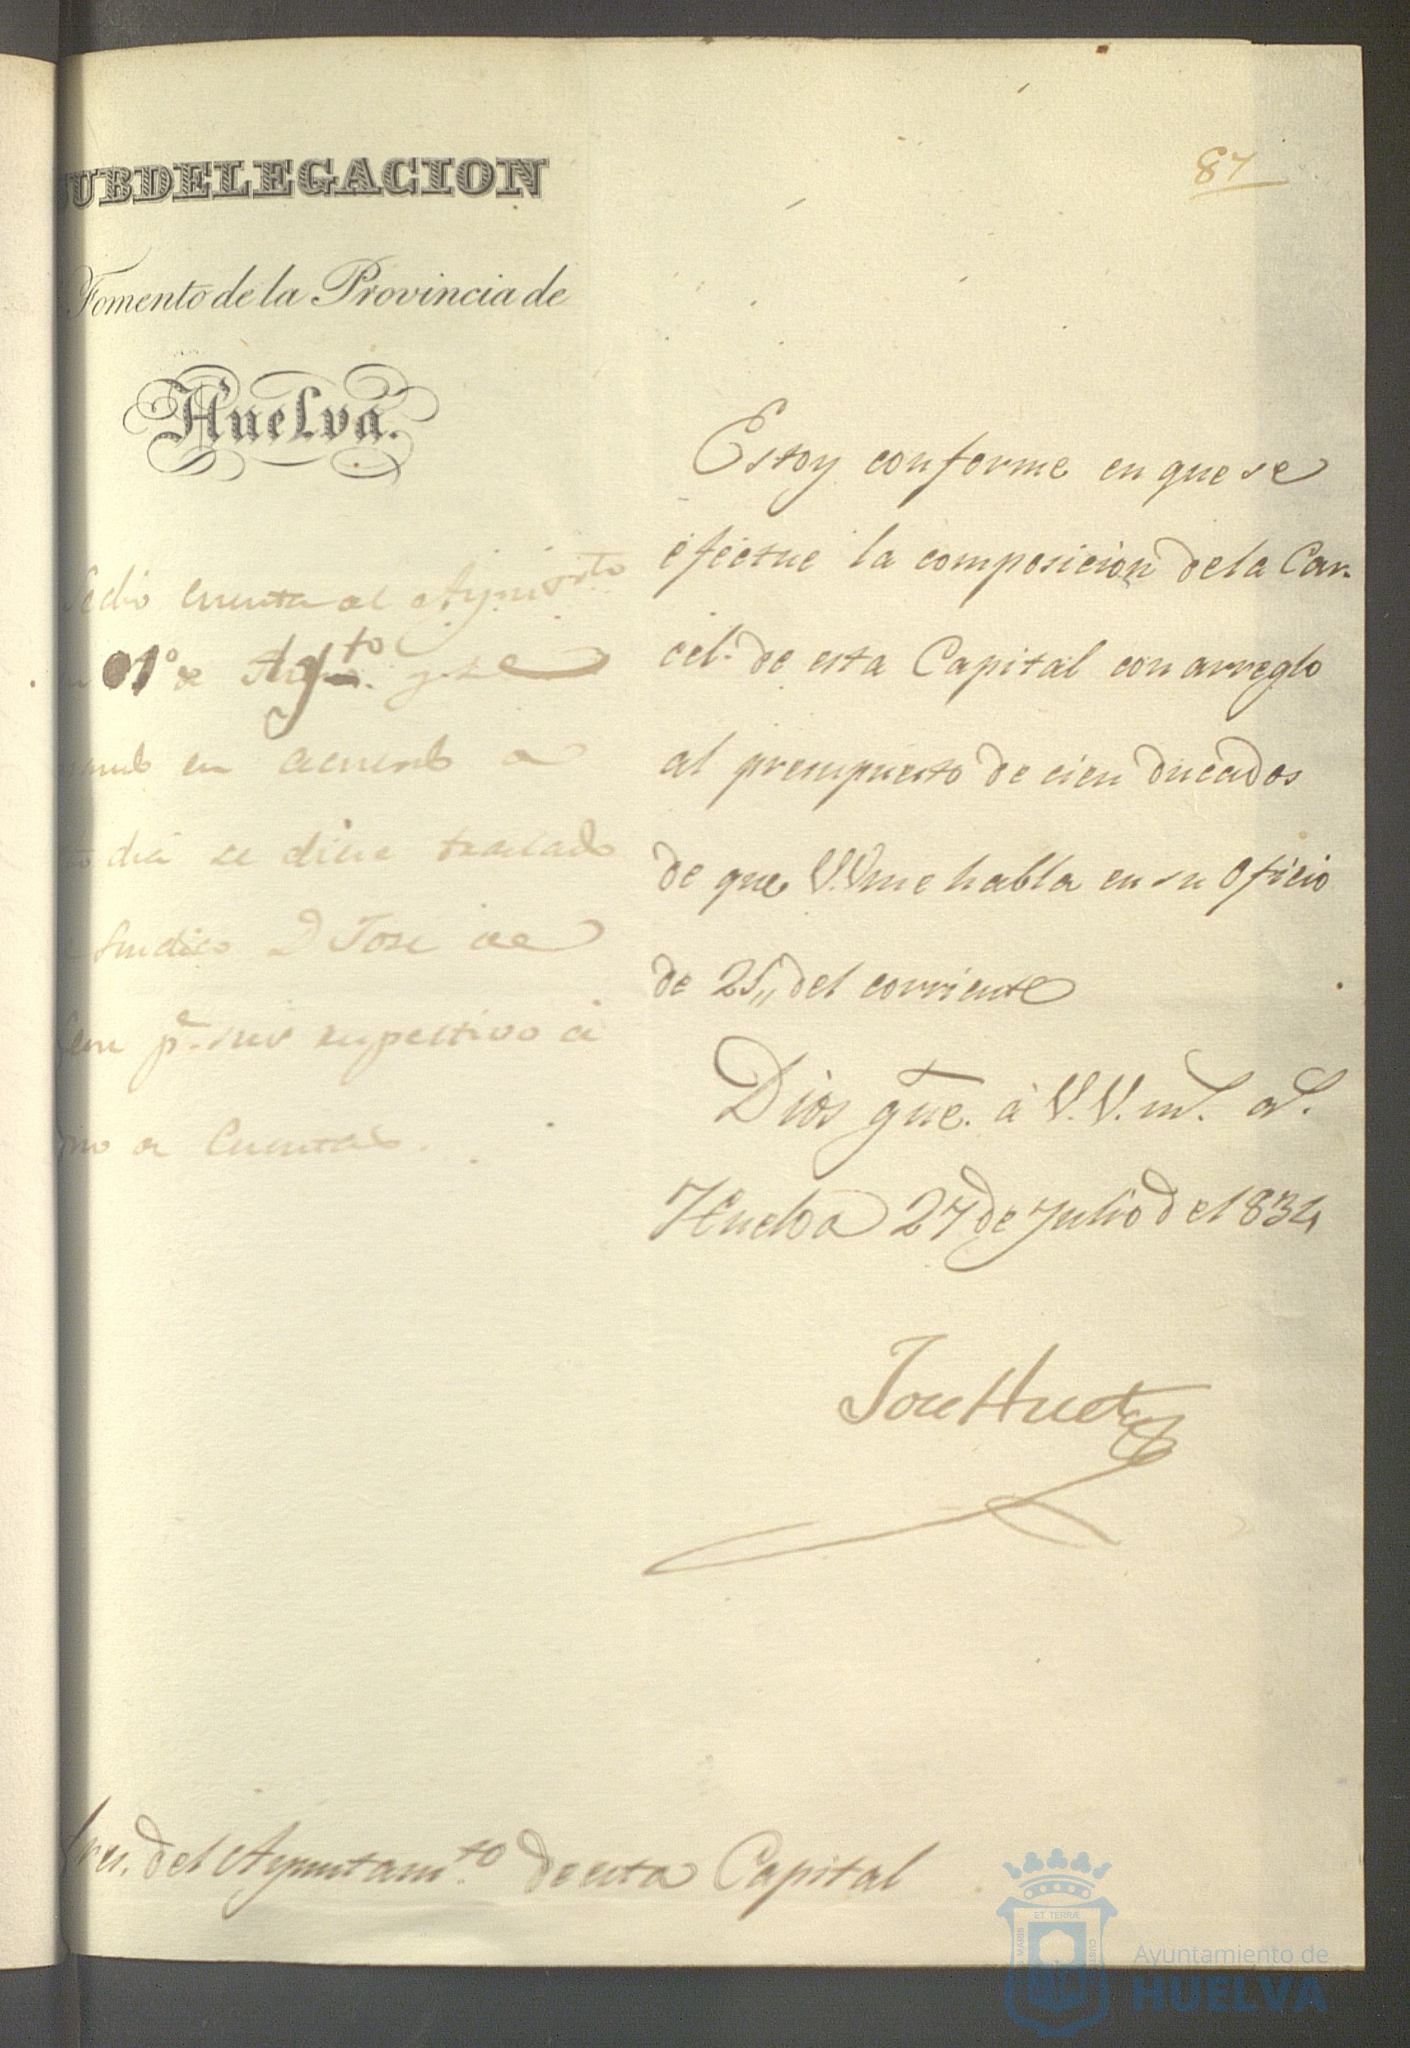 87
SUBDELEGACION
Fomento de la Provincia de
Huelva.
Se dió cuenta al Ayunto
01º de Agto. y se
en acuerdo a
dia se diese traslado
Sindico D Jose de
pª su respectivo
a Cuentas.
Estoy conforme en que se
efectue la composicion de la Car-
cel. de esta Capital con arreglo
al presupuesto de cien ducados
de que V.V me habla en su Oficio
de 25,, del corriente
Dios gue. á V.V. ms. as.
Huelva 27 de Julio de 1834
Jose Huet
Sres. del Ayuntamto. de esta Capital
ET TERRÆ
MARIS
CUSTOS
Ayuntamiento de
HUELVA